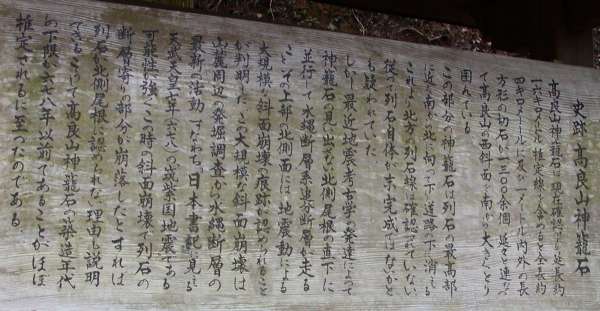 史跡 高良山神籠石
高良山神籠石は現在確認される延長約
一・六キロメートル 推定線も含めると全長約
四キロメートルに及び 一メートル内外の長
方形の切石が一三〇〇余個 延々と連なっ
て高良山の西斜面を南から大きくとり
囲んでいる
この部分の神籠石は列石線の最高部
に近く 南から北に向って下り道路の下に消える
これより北方の列石線は確認されていない
従って列石自体が未完成ではないかと
も疑われていた
しかし 最近 地震考古学の発達によって
神籠石の見い出せない北側尾根の直下に
並行して水縄断層系追分断層が走る
こと その上部の北側面には 地震動による
大規模な斜面崩壊の痕跡が認められること
が判明した この大規模な斜面崩壊は
山麓周辺の発掘調査から水縄断層の
最新の活動 すなわち「日本書紀」に見える
天武天皇七年(六七八)の筑紫国地震である
可能性が強く この時の斜面崩壊で列石の
断層寄りの部分が崩落したとすれば
列石が北側尾根に認められない理由も説明
できる こうして高良山神籠石の築造年代
の下限が六七八年以前であることがほぼ
推定されるに至ったのである